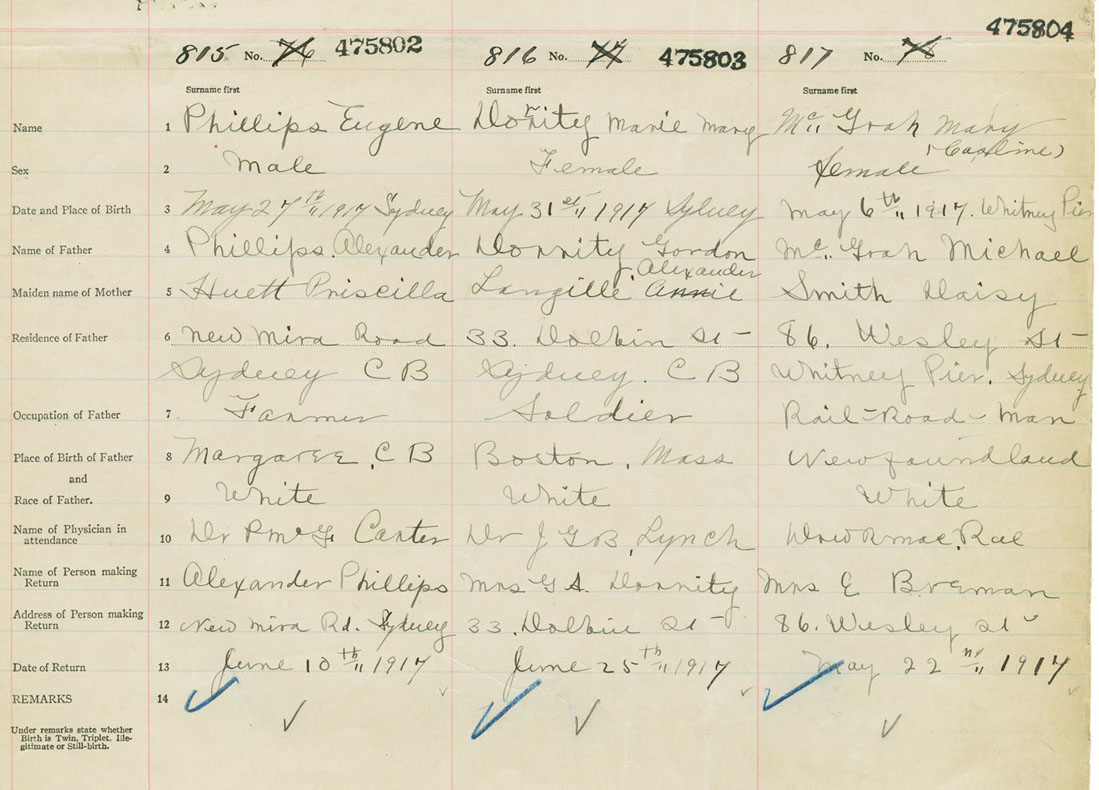 475804
815 No. 76 475802 816 No. 77 475803 817 No. 78
Surname first Surname first Surname first
Name 1 Phillips Eugene Dornity Marie Mary Mc Grah Mary
(Caroline)
Sex 2 Male Female Female
Date and Place of Birth 3 May 27th 1917 Sydney May 31st 1917 Sydney May 6th 1917. Whitney Pier
Name of Father 4 Phillips Alexander Dornity Gordon Mc Grah Michael
Alexander
Maiden name of Mother 5 Huett Priscilla Langille Annie Smith Daisy
Residence of Father 6 New Mira Road 33. Dolbin St - 86. Wesley St -
Sydney C B Sydney. C B Whitney Pier. Sydney
Occupation of Father 7 Farmer Soldier Rail-Road-Man
Place of Birth of Father 8 Margaree, C B Boston, Mass Newfoundland
and
Race of Father. 9 White White White
Name of Physician in
attendance 10 Dr Carter Dr J G B, Lynch
Name of Person making
Return 11 Alexander Phillips Mrs G A. Dornity Mrs E Breman
Address of Person making
Return 12 New Mira Rd. Sydney 33. Dolbin St - 86. Wesley St -
Date of Return 13 June 10th 1917 June 25th 1917 May 22nd 1917
REMARKS 14
Under remarks state whether
Birth is Twin, Triplet, Ille-
gitimate or Still-birth.